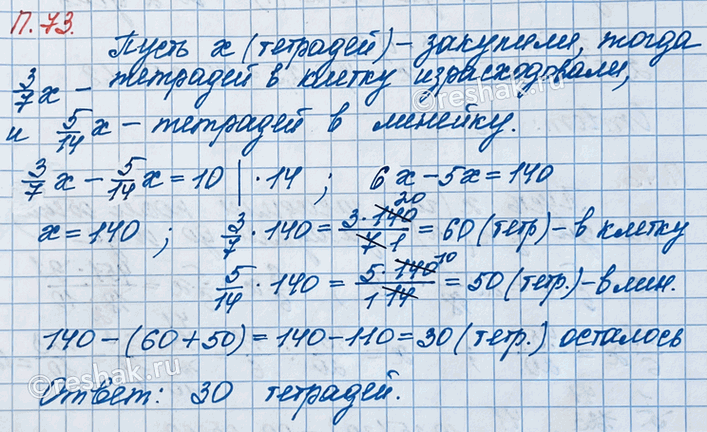 П. 73.
Пусть x (тетрадей) - закупили, тогда
3/7 x - тетрадей в клетку израсходовали,
и 5/14 x - тетрадей в линейку.
3/7 x - 5/14 x = 10 | · 14 ; 6x - 5x = 140
x = 140 ; 3/7 · 140 = 3 · 140 20 / 7 1 = 60 (тетр) - в клетку
5/14 · 140 = 5 · 140 10 / 1 14 = 50 (тетр.) - в лин.
140 - (60 + 50) = 140 - 110 = 30 (тетр.) осталось
Ответ: 30 тетрадей.
©reshak.ru
©reshak.ru